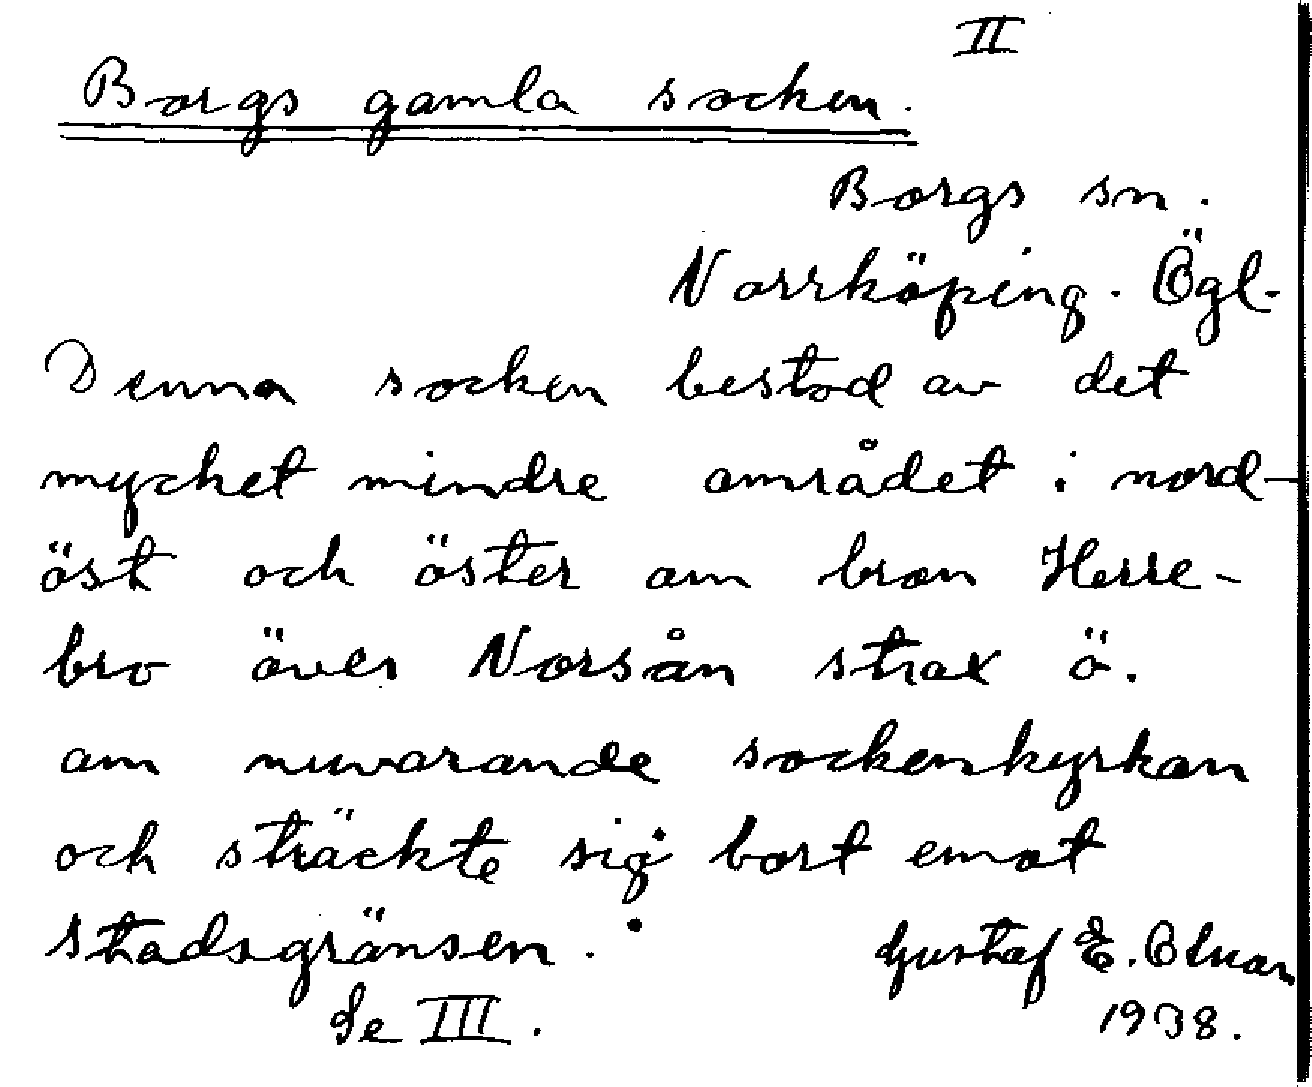 II
Borgs gamla socken.
Borgs sn.
Norrköping. Ögl.
Denna socken bestod av det
mycket mindre området i nord-
öst och öster om bron Herre-
bro över Norsån strax ö.
om nuvarande sockenkyrkan
och sträckte sig bort emot
stadsgränsen.
Gustaf E.
Se III.
1938.